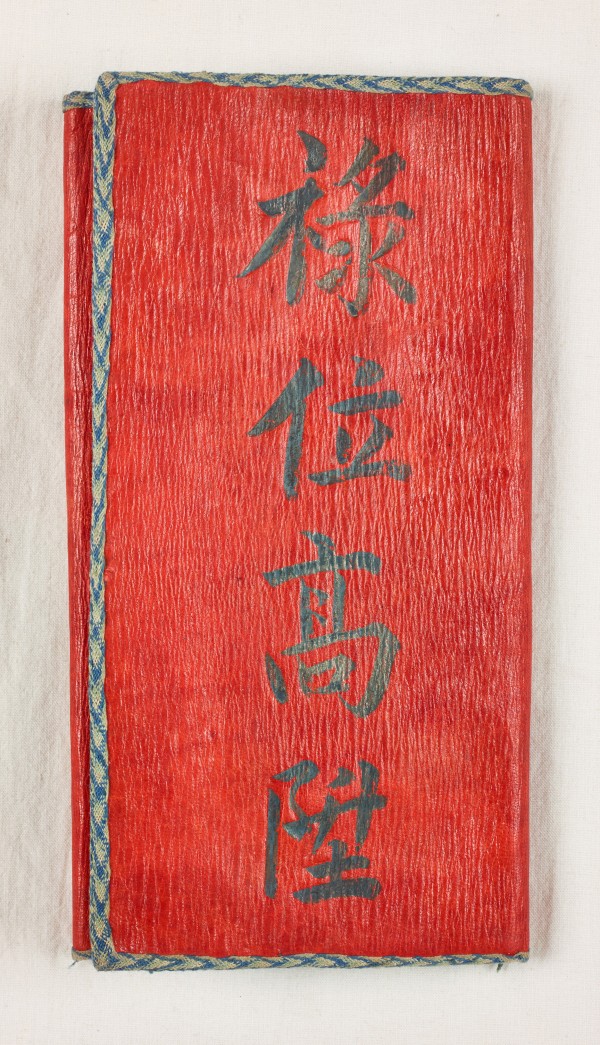 祿位高陞